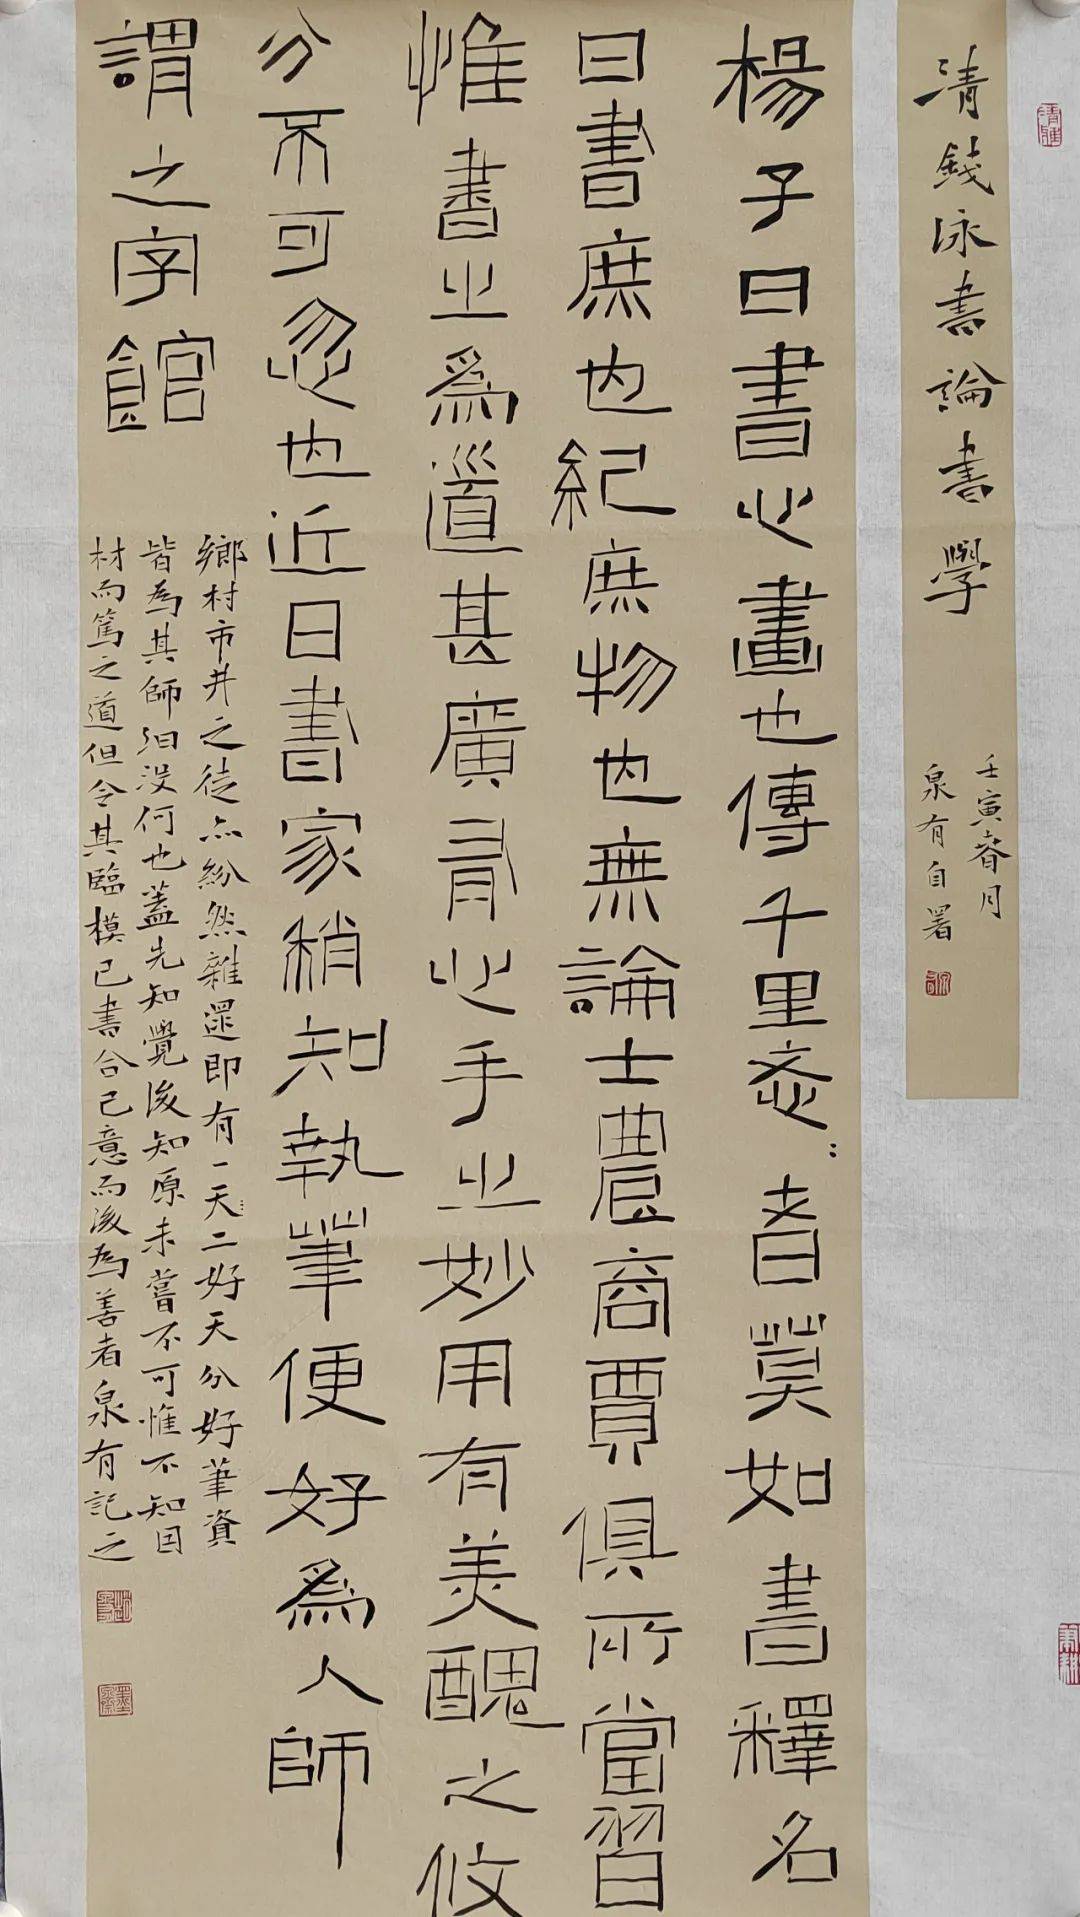 清錢泳書論書學
壬寅春月
泉有自署
楊子曰書心畫也傳千里忞忞者莫如書釋名
曰書庶也紀庶物也無論士農商賈俱所當習
惟書之為道甚廣有心手之妙用有美醜之攸
分不可忽也近日書家稍知執筆便好為人師
謂之字館
鄉村市井之徒亦紛然雜遝即有一天二好天分好筆資
皆為其師汩没何也蓋先知覺後知原未嘗不可惟不知因
材而篤之道但令其臨模己書合己意而後為善者泉有記之